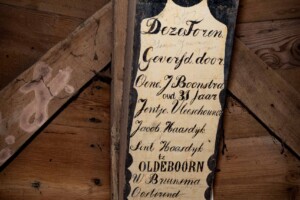 Deze Toren
Geverfd door
Oene J Boonstra
oud 31 Jaar
Jentje Vleeschouwer
Jacob Haasdijk
Haasdijk
te
OLDEBOORN
W Bruinsma
Oosterend